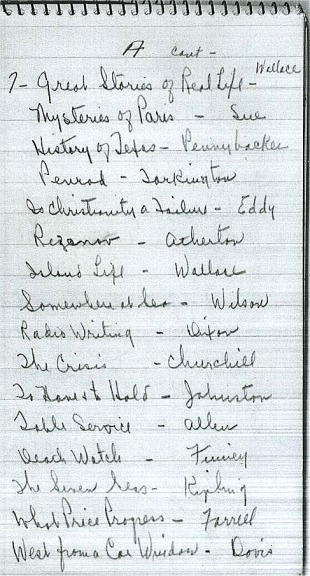 A cont -
Wallace
7- Great Stories of Real Life -
Mysteries of Paris - Sue
History of Texas - Pennybacker
Penrod - Tarkington
Is Christianity a Failure - Eddy
Rezanov - Atherton
Island Life - Wallace
Somewhere at Sea - Wilson
Radio Writing - Dixon
The Crisis - Churchill
To Have & to Hold - Johnston
Table Service - Allen
Death Watch - Finney
The Seven Seas - Kipling
What Price Progress - Farrell
West from a Car Window - Davis